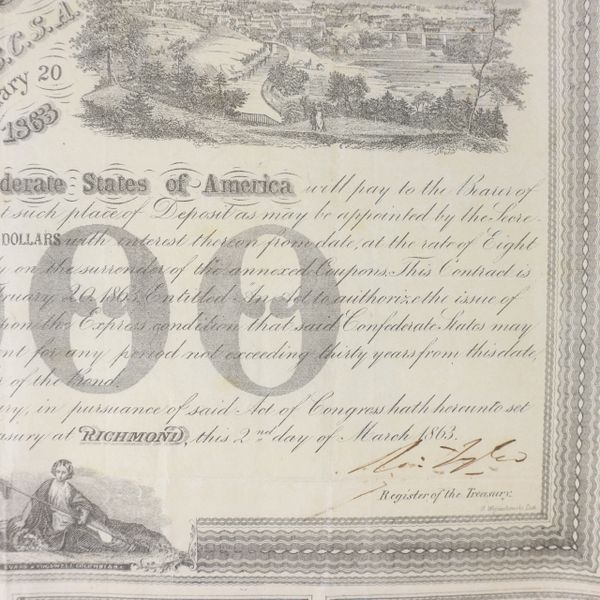 C.S.A.
ary 20
1863
derate States of America will pay to the Bearer of
such place of Deposit as may be appointed by the Secre-
DOLLARS with interest thereon from date, at the rate of Eight
on the surrender of the annexed Coupons. This Contract is
ruary 20, 1863, Entitled An Act to authorize the issue of
pon the Express condition that said Confederate States may
nt for any period not exceeding thirty years from this date,
of the Bond.
00
ry, in pursuance of said Act of Congress hath hereunto set
easury at RICHMOND, this 2nd day of March 1863.
Register of the Treasury.